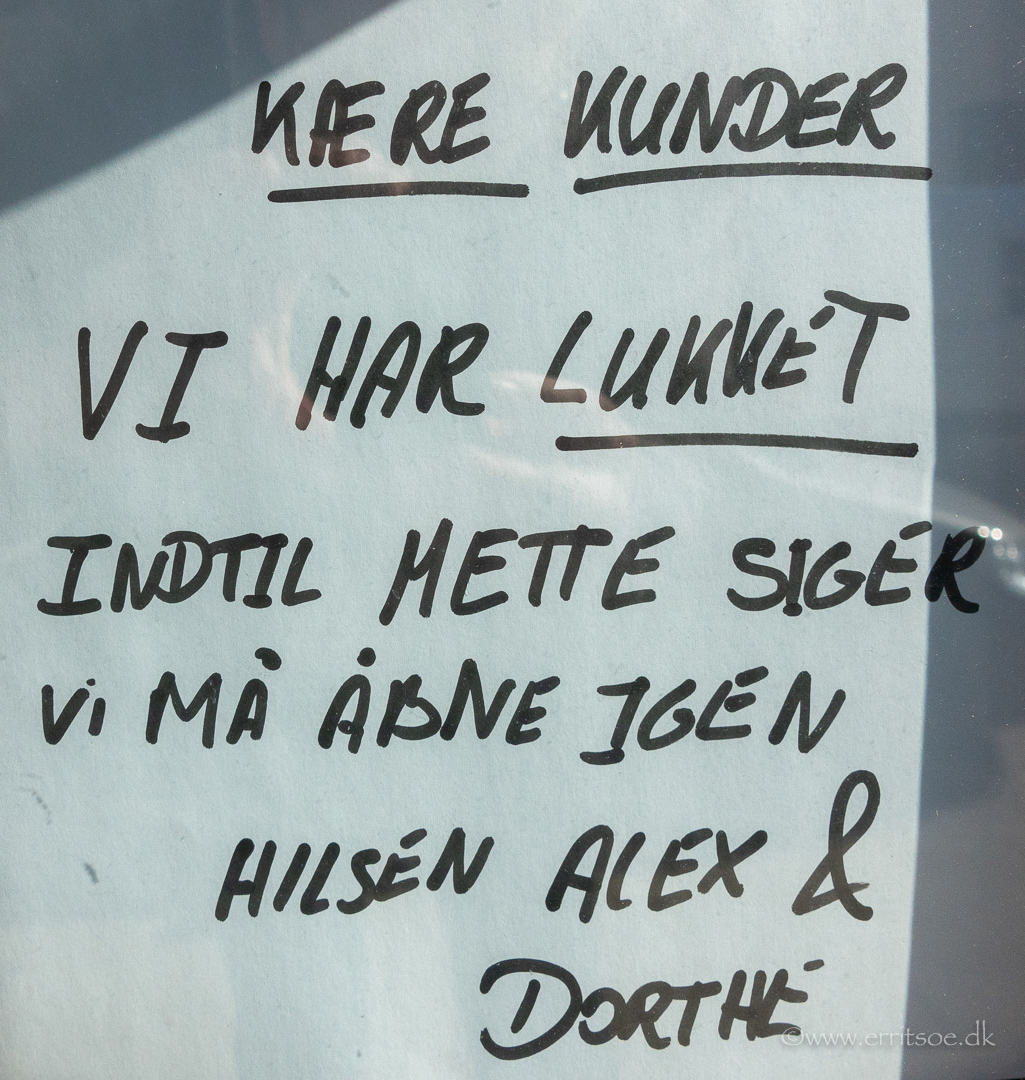 KÆRE KUNDER
VI HAR LUKKET
INDTIL METTE SIGER
Vi MÅ ÅBNE IGEN
HILSEN ALEX &
DORTHE
©www.erritsoe.dk